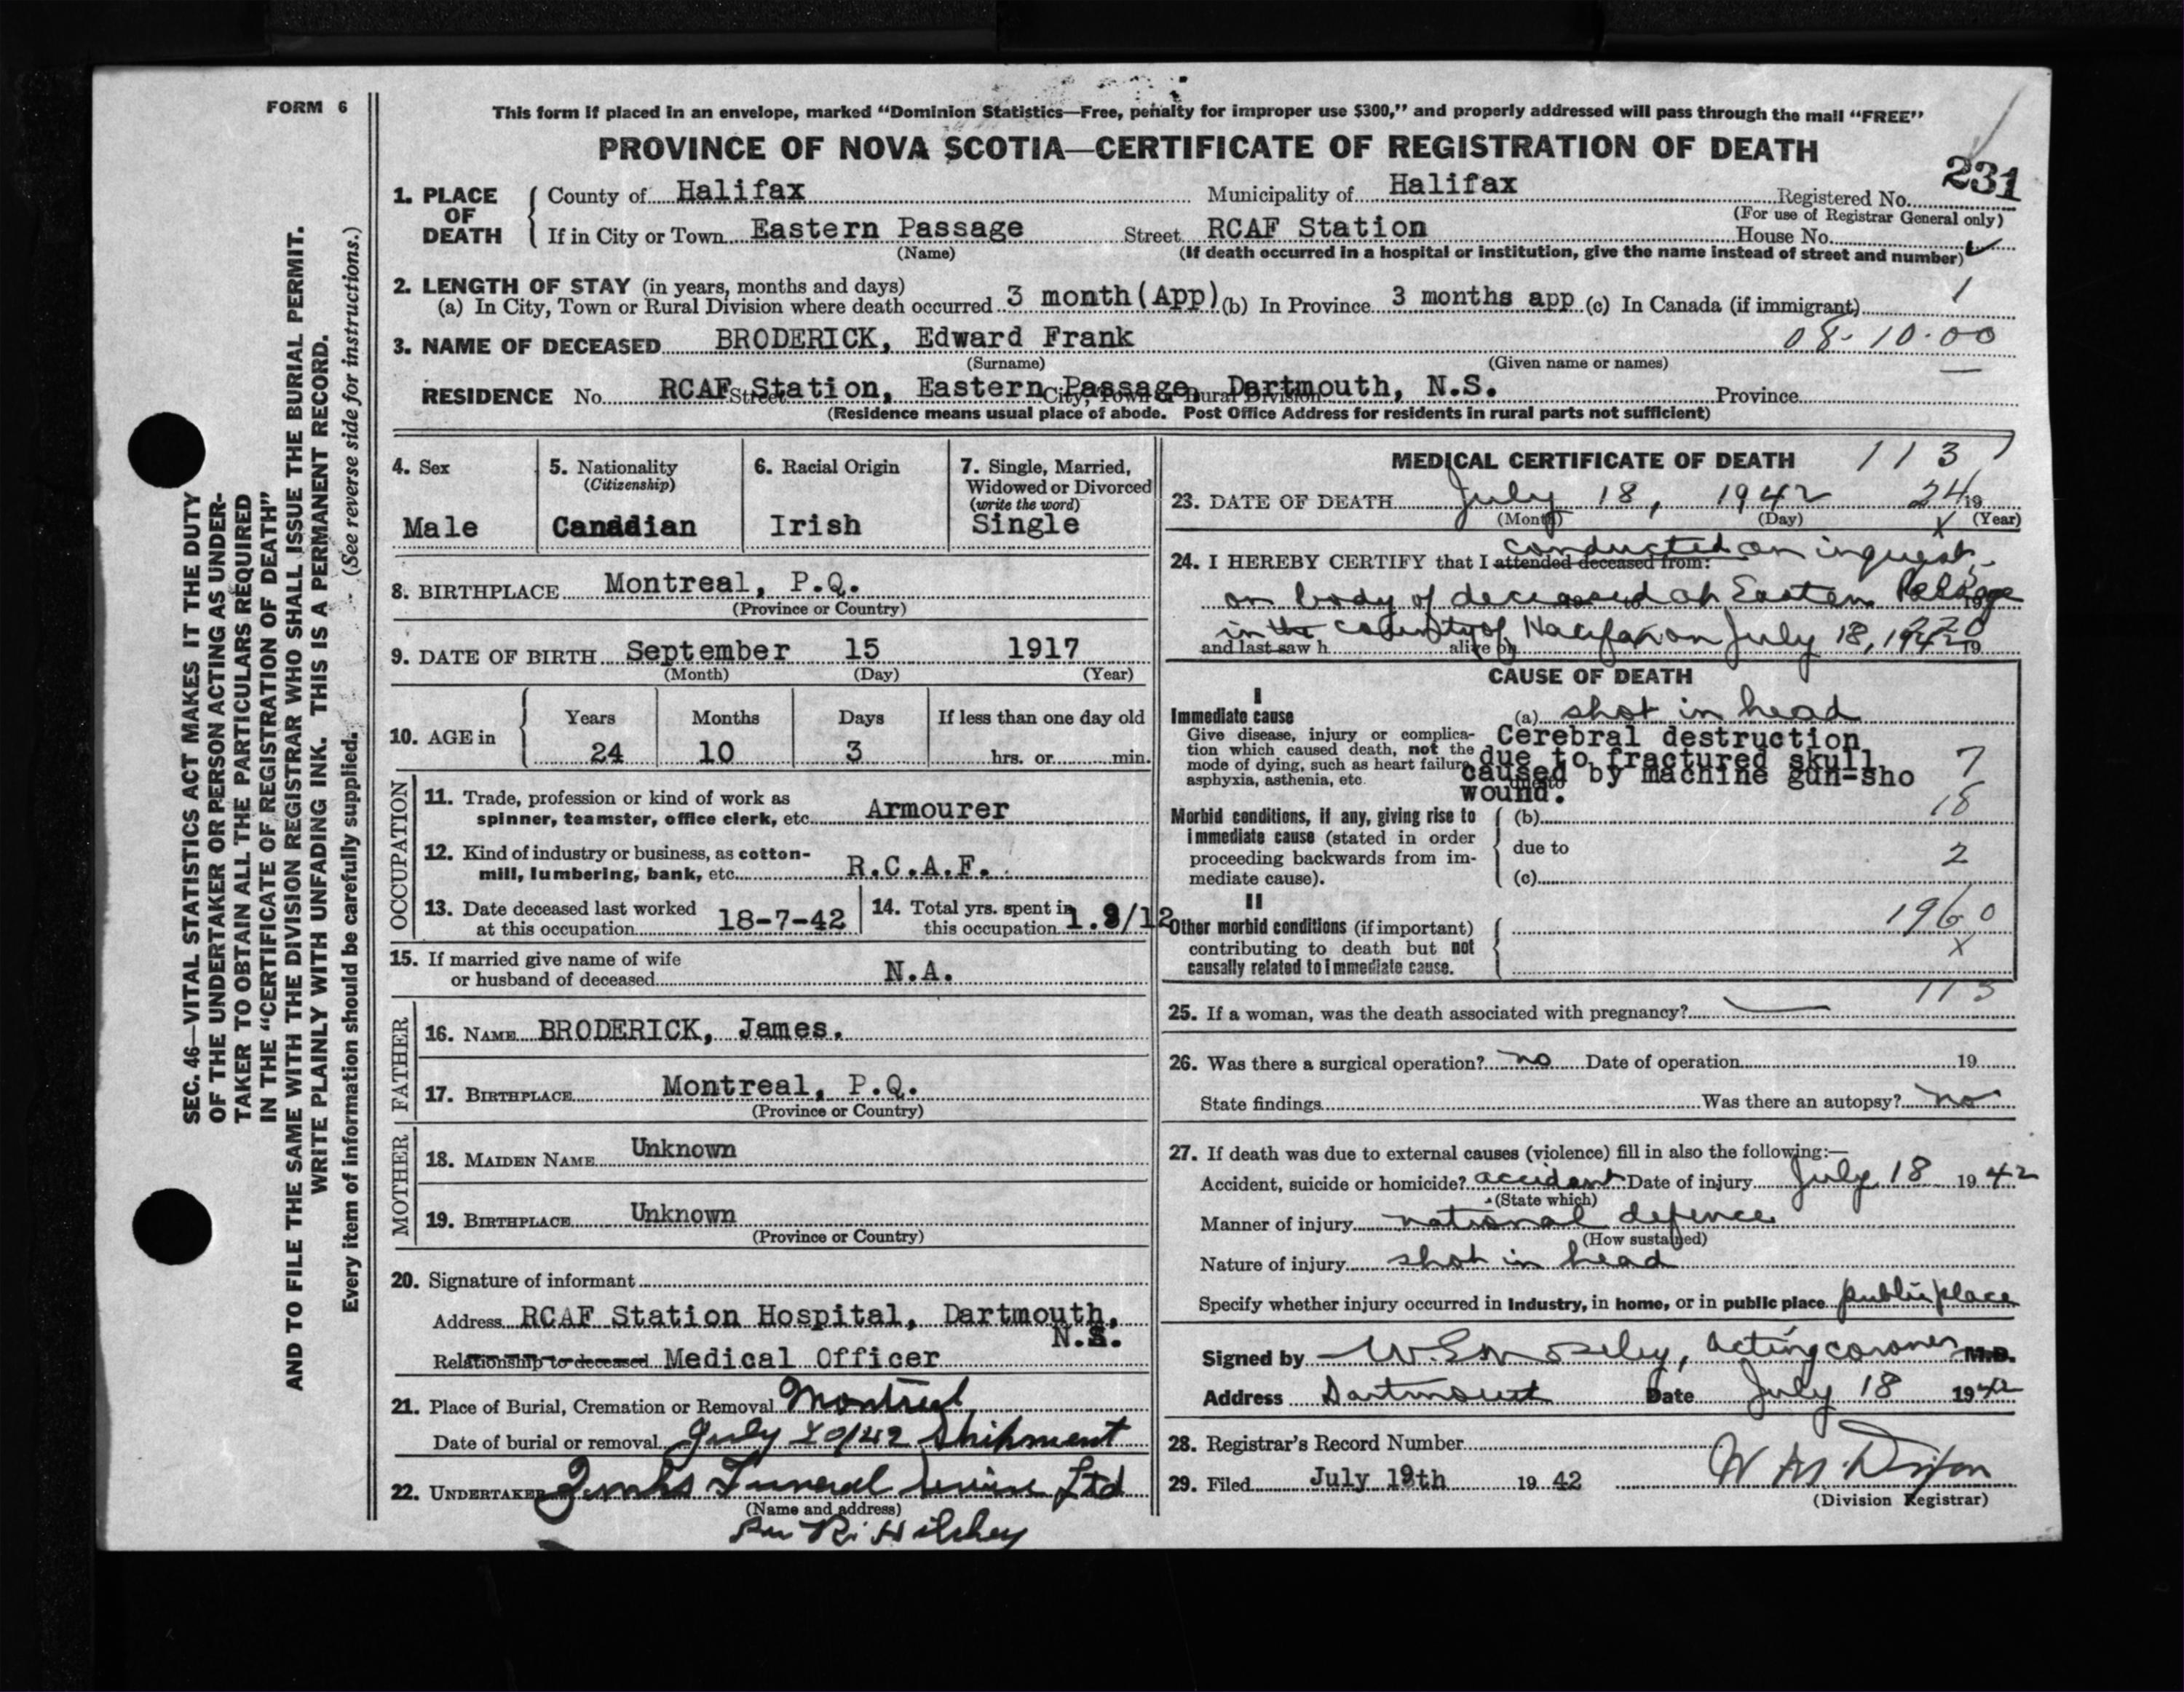 FORM 6
This form if placed in an envelope, marked “Dominion Statistics—Free, penalty for improper use $300,” and properly addressed will pass through the mail “FREE”
PROVINCE OF NOVA SCOTIA—CERTIFICATE OF REGISTRATION OF DEATH
231
1. PLACE OF DEATH { County of Halifax Municipality of Halifax Registered No.
(For use of Registrar General only)
If in City or Town Eastern Passage Street RCAF Station House No.
(Name) (If death occurred in a hospital or institution, give the name instead of street and number)
2. LENGTH OF STAY (in years, months and days)
(a) In City, Town or Rural Division where death occurred 3 month(App) (b) In Province 3 months app (c) In Canada (if immigrant) 1
3. NAME OF DECEASED BRODERICK, Edward Frank 08-10-00
(Surname) (Given name or names)
RESIDENCE No. RCAF Station, Eastern Passage, Dartmouth, N.S. Street City, Town or Rural Division Province
(Residence means usual place of abode. Post Office Address for residents in rural parts not sufficient)
4. Sex
Male
5. Nationality
(Citizenship)
Canadian
6. Racial Origin
Irish
7. Single, Married,
Widowed or Divorced
(write the word)
Single
8. BIRTHPLACE Montreal, P.Q.
(Province or Country)
9. DATE OF BIRTH September 15 1917
(Month) (Day) (Year)
10. AGE in { Years Months Days If less than one day old
24 10 3 hrs. or min.
OCCUPATION
11. Trade, profession or kind of work as
spinner, teamster, office clerk, etc. Armourer
12. Kind of industry or business, as cotton-
mill, lumbering, bank, etc. R.C.A.F.
13. Date deceased last worked
at this occupation 18-7-42
14. Total yrs. spent in
this occupation /12
15. If married give name of wife
or husband of deceased N.A.
FATHER
16. NAME BRODERICK, James.
17. BIRTHPLACE Montreal, P.Q.
(Province or Country)
MOTHER
18. MAIDEN NAME Unknown
19. BIRTHPLACE Unknown
(Province or Country)
20. Signature of informant
Address RCAF Station Hospital, Dartmouth,
N.S.
Relationship to deceased Medical Officer
21. Place of Burial, Cremation or Removal Montreal
Date of burial or removal July 20/42 Shipment
22. UNDERTAKER Funeral Service Ltd
(Name and address)
MEDICAL CERTIFICATE OF DEATH 113
23. DATE OF DEATH July 18, 1942 24 19
(Month) (Day) (Year)
24. I HEREBY CERTIFY that I attended deceased from: conducted an inquest
on body of deceased at Eastern Passage
in the county of Halifax on July 18, 1942
and last saw h alive on 19
CAUSE OF DEATH
I
Immediate cause (a) shot in head
Give disease, injury or complica-
tion which caused death, not the
mode of dying, such as heart failure,
asphyxia, asthenia, etc.
Cerebral destruction
due to fractured skull 7
caused by machine gun-sho
wound.
due to
18
Morbid conditions, if any, giving rise to
immediate cause (stated in order
proceeding backwards from im-
mediate cause).
(b)
due to 2
(c)
II
Other morbid conditions (if important)
contributing to death but not
causally related to immediate cause.
1960
X
113
25. If a woman, was the death associated with pregnancy?
26. Was there a surgical operation? no Date of operation 19
State findings Was there an autopsy? no
27. If death was due to external causes (violence) fill in also the following:—
Accident, suicide or homicide? accident Date of injury July 18 1942
(State which)
Manner of injury national defence
(How sustained)
Nature of injury shot in head
Specify whether injury occurred in industry, in home, or in public place public place
Signed by acting coroner M.D.
Address Dartmouth Date July 18 1942
28. Registrar’s Record Number
29. Filed July 19th 1942 W M. Dixon
(Division Registrar)
SEC. 46—VITAL STATISTICS ACT MAKES IT THE DUTY
OF THE UNDERTAKER OR PERSON ACTING AS UNDER-
TAKER TO OBTAIN ALL THE PARTICULARS REQUIRED
IN THE “CERTIFICATE OF REGISTRATION OF DEATH”
AND TO FILE THE SAME WITH THE DIVISION REGISTRAR WHO SHALL ISSUE THE BURIAL PERMIT.
WRITE PLAINLY WITH UNFADING INK. THIS IS A PERMANENT RECORD.
Every item of information should be carefully supplied. (See reverse side for instructions.)